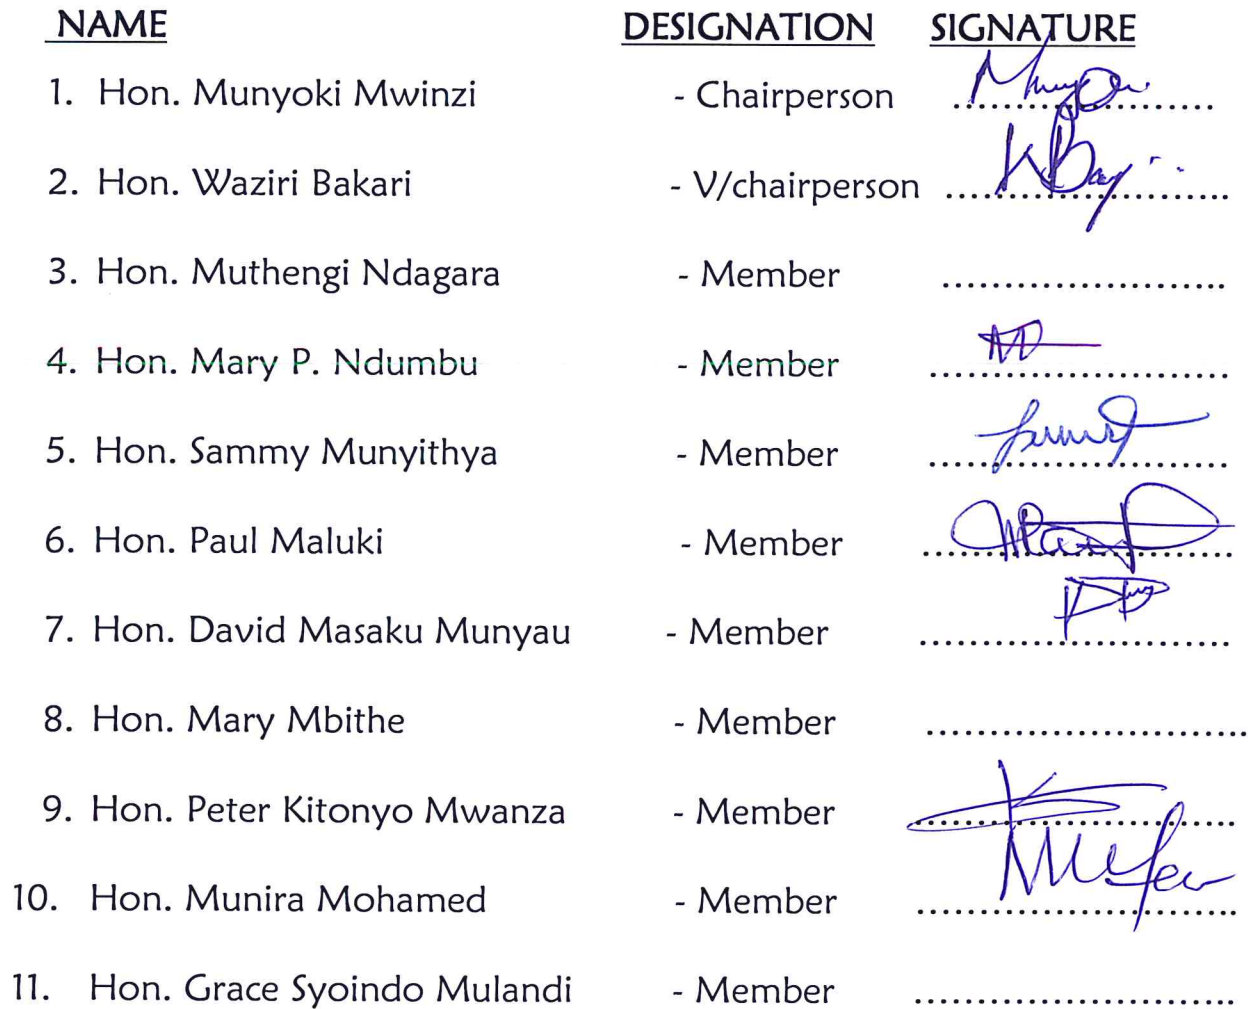 NAME DESIGNATION SIGNATURE
1. Hon. Munyoki Mwinzi - Chairperson ........................
2. Hon. Waziri Bakari - V/chairperson ........................
3. Hon. Muthengi Ndagara - Member ........................
4. Hon. Mary P. Ndumbu - Member ........................
5. Hon. Sammy Munyithya - Member ........................
6. Hon. Paul Maluki - Member ........................
7. Hon. David Masaku Munyau - Member ........................
8. Hon. Mary Mbithe - Member ........................
9. Hon. Peter Kitonyo Mwanza - Member ........................
10. Hon. Munira Mohamed - Member ........................
11. Hon. Grace Syoindo Mulandi - Member ........................